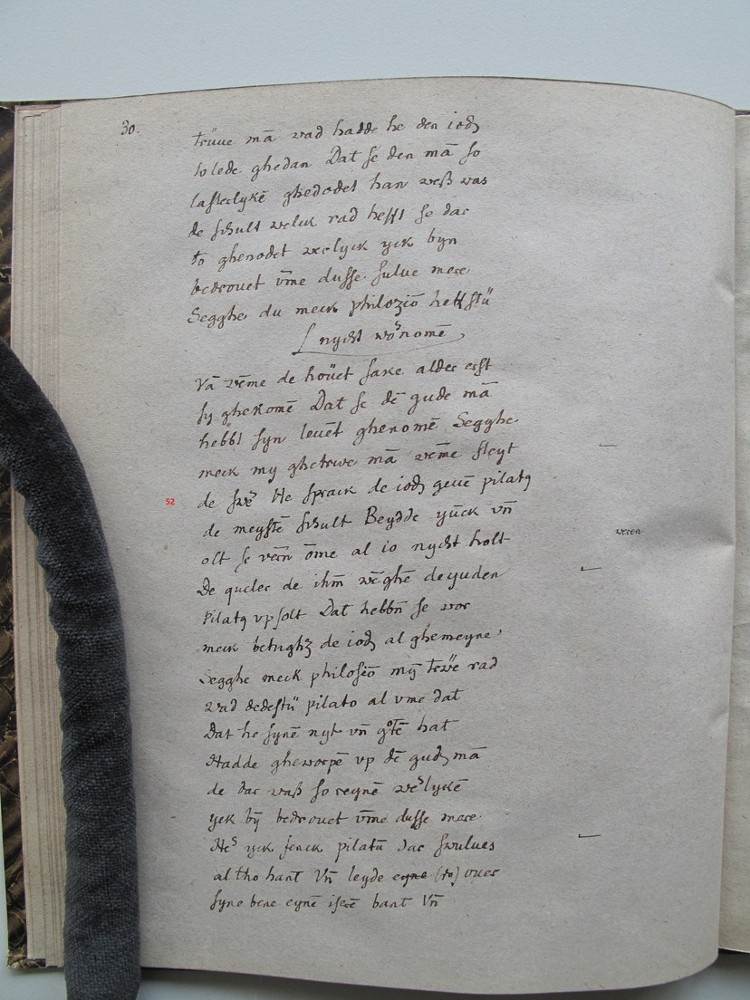 30.
trüue mā wad hadde he den iodȝ
to lede ghedan Dat se den mā so
lasterlykē ghedodet han weß was
de schult welck rad hefft se dar
to ghenodet welyck yck byn
bedrouet vm̄e dusse sulue mere
Segghe du meck philoziō heffstü
nycht nomē
Vā wēme de höuet sake alder erst
sy ghekomē Dat se dē gude mā
hebbt syn leuēt ghenomē Segghe
meck my ghetrwe mā wēme sleyt
52
de He sprack de iodȝ geuē pilatȝ
de meystē schult Beydde yück vn̄
olt se vērn ōme al io nycht holt
weren
De queler de ihm̄ wēghē de yuden
Pilatȝ vp solt Dat hebbn̄ se vor
meck betughȝ de iodȝ al ghemeyne
Segghe meck philosiō mȳ trwe rad
wad dedestü pilato al vme dat
Dat he synē nyt vn̄ hat
Hadde gheworpē vp dē gudȝ mā
de dar waß so reynē lykē
yck bȳ bedrouet vm̄e dusse mere
yck senck pilatū dar swulues
altho hant Vn̄ leyde eyne (to) vner
syne bene eynē bant Vn̄